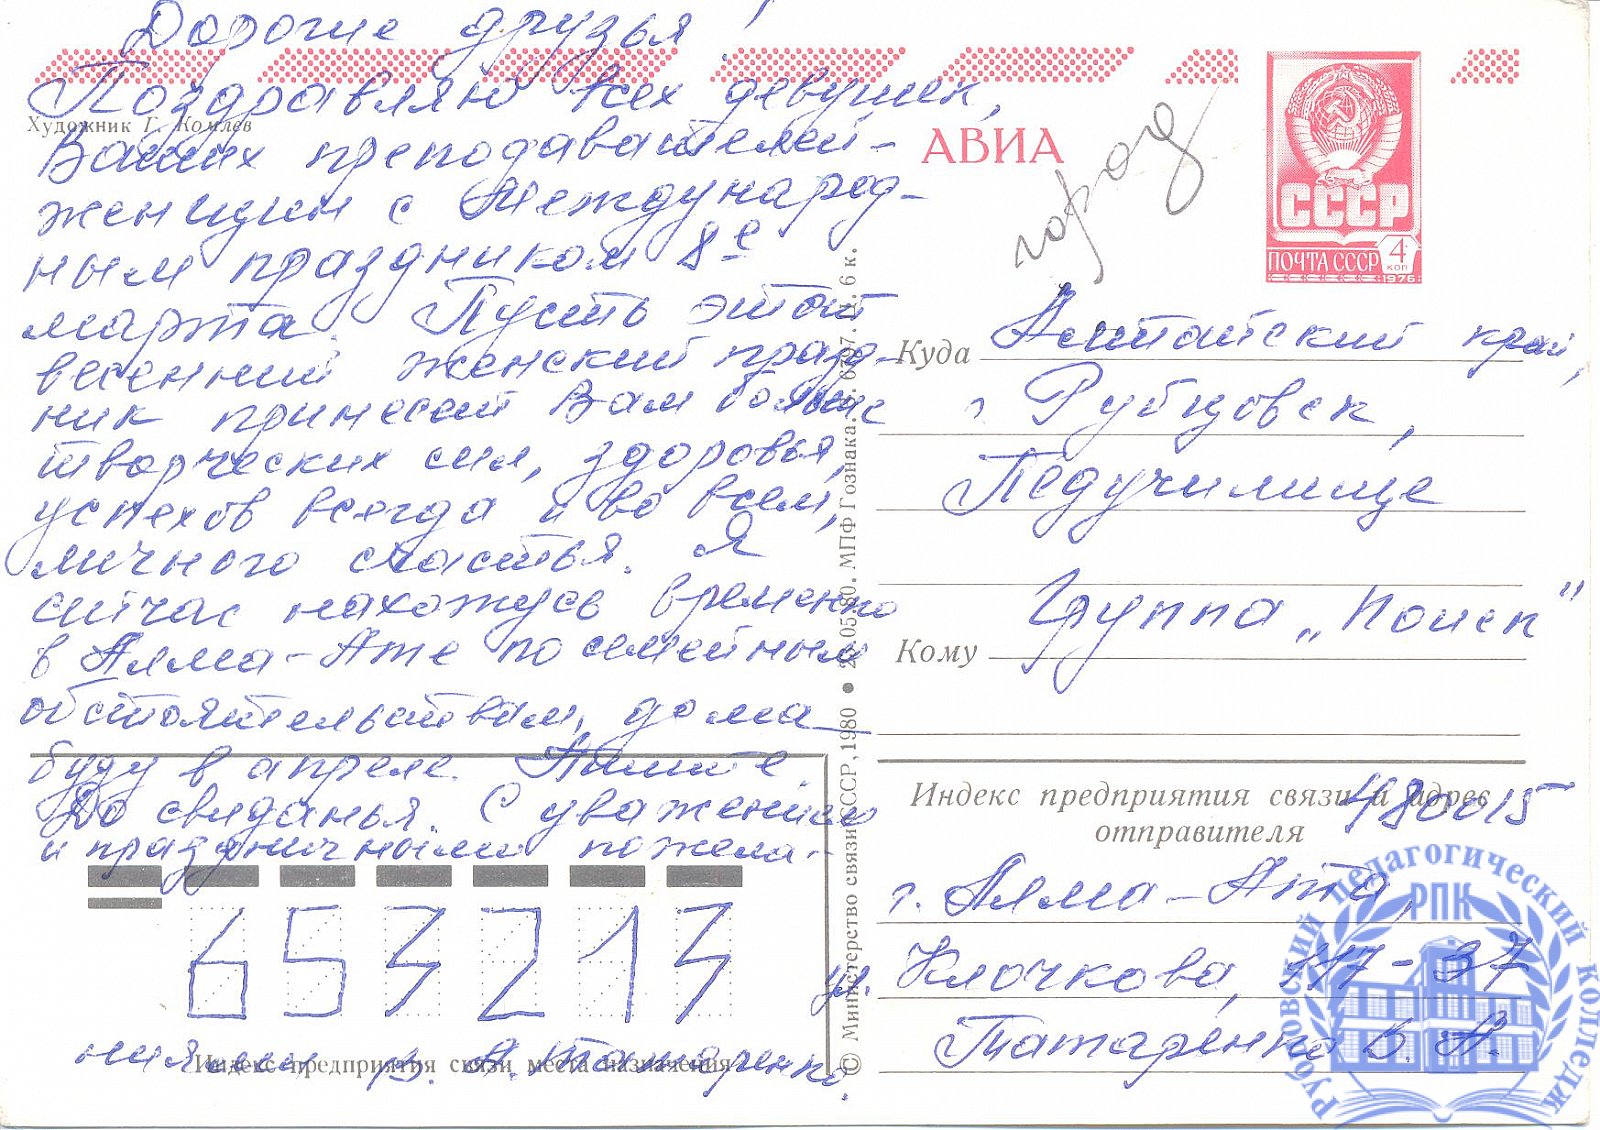 Дорогие друзья!
Поздравляю всех девушек,
Ваших преподавателей-
женщин с Международ-
ным праздником 8е
марта. Пусть этот
весенний женский празд-
ник принесет Вам больше
творческих сил, здоровья,
успехов всегда и во всем,
личного счастья. Я
сейчас нахожусь временно
в Алма-Ате по семейным
обстоятельствам, дома
буду в апреле. Пишите.
До свиданья. С уважением
и праздничными пожела-
ниями В. А. Татаренко.
Художник Г. Комлев
653213
Индекс предприятия связи места назначения
© Министерство связи СССР, 1980 ● 2 05 80. МПФ Гознака. 6797. Ц. 6 к.
АВИА
город
СССР
ПОЧТА СССР 4 КОП
1976
Куда Алтайский край,
г. Рубцовск,
Педучилище
Кому Группа „Поиск"
Индекс предприятия связи и адрес
отправителя
480015
г. Алма-Ата,
ул. Клочкова, 117-37
Татаренко В. А.
Рубцовский педагогический колледж
РПК